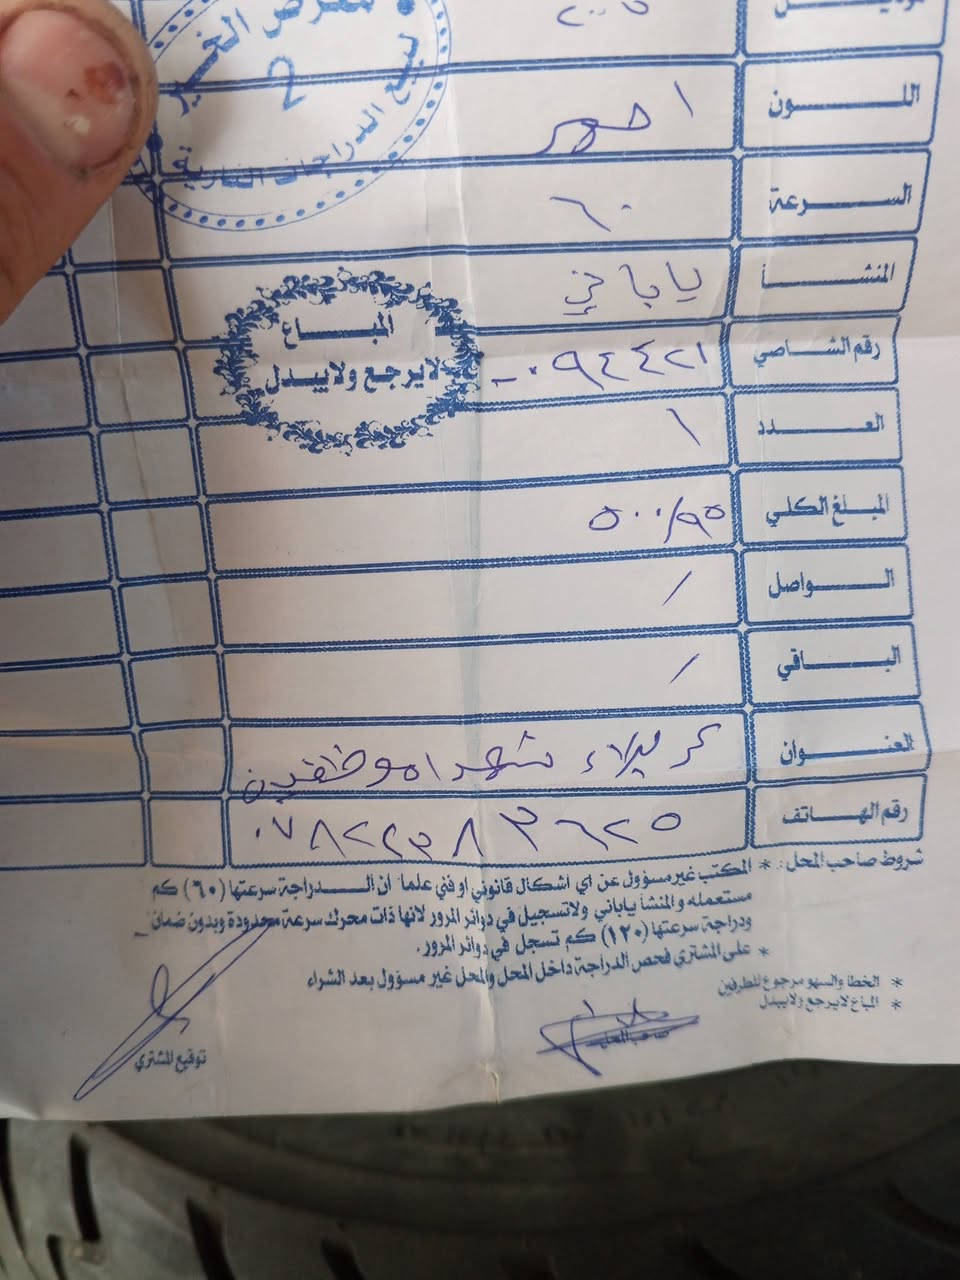 معرض الغدير
2
لبيع الدراجات النارية
الموديل ٢٠٠٥
اللون احمر
السرعة ٦٠
المنشأ ياباني
رقم الشاصي ٠٩٤٤٢١
العدد ١
المبلغ الكلي ٩٥/٥٠٠
الواصل /
الباقي /
العنوان كربلاء شهداء موظفين
رقم الهاتف
المباع
لايرجع ولايبدل
شروط صاحب المحل: * المكتب غير مسؤول عن اي اشكال قانوني او فني علما ان الدراجة سرعتها (٦٠) كم
مستعمله والمنشأ ياباني ولاتسجيل في دوائر المرور لانها ذات محرك سرعة محدودة وبدون ضمان
ودراجة سرعتها (١٢٠) كم تسجل في دوائر المرور.
* على المشتري فحص الدراجة داخل المحل والمحل غير مسؤول بعد الشراء
* الخطا والسهو مرجوع للطرفين
* المباع لايرجع ولايبدل
صاحب المحل
توقيع المشتري